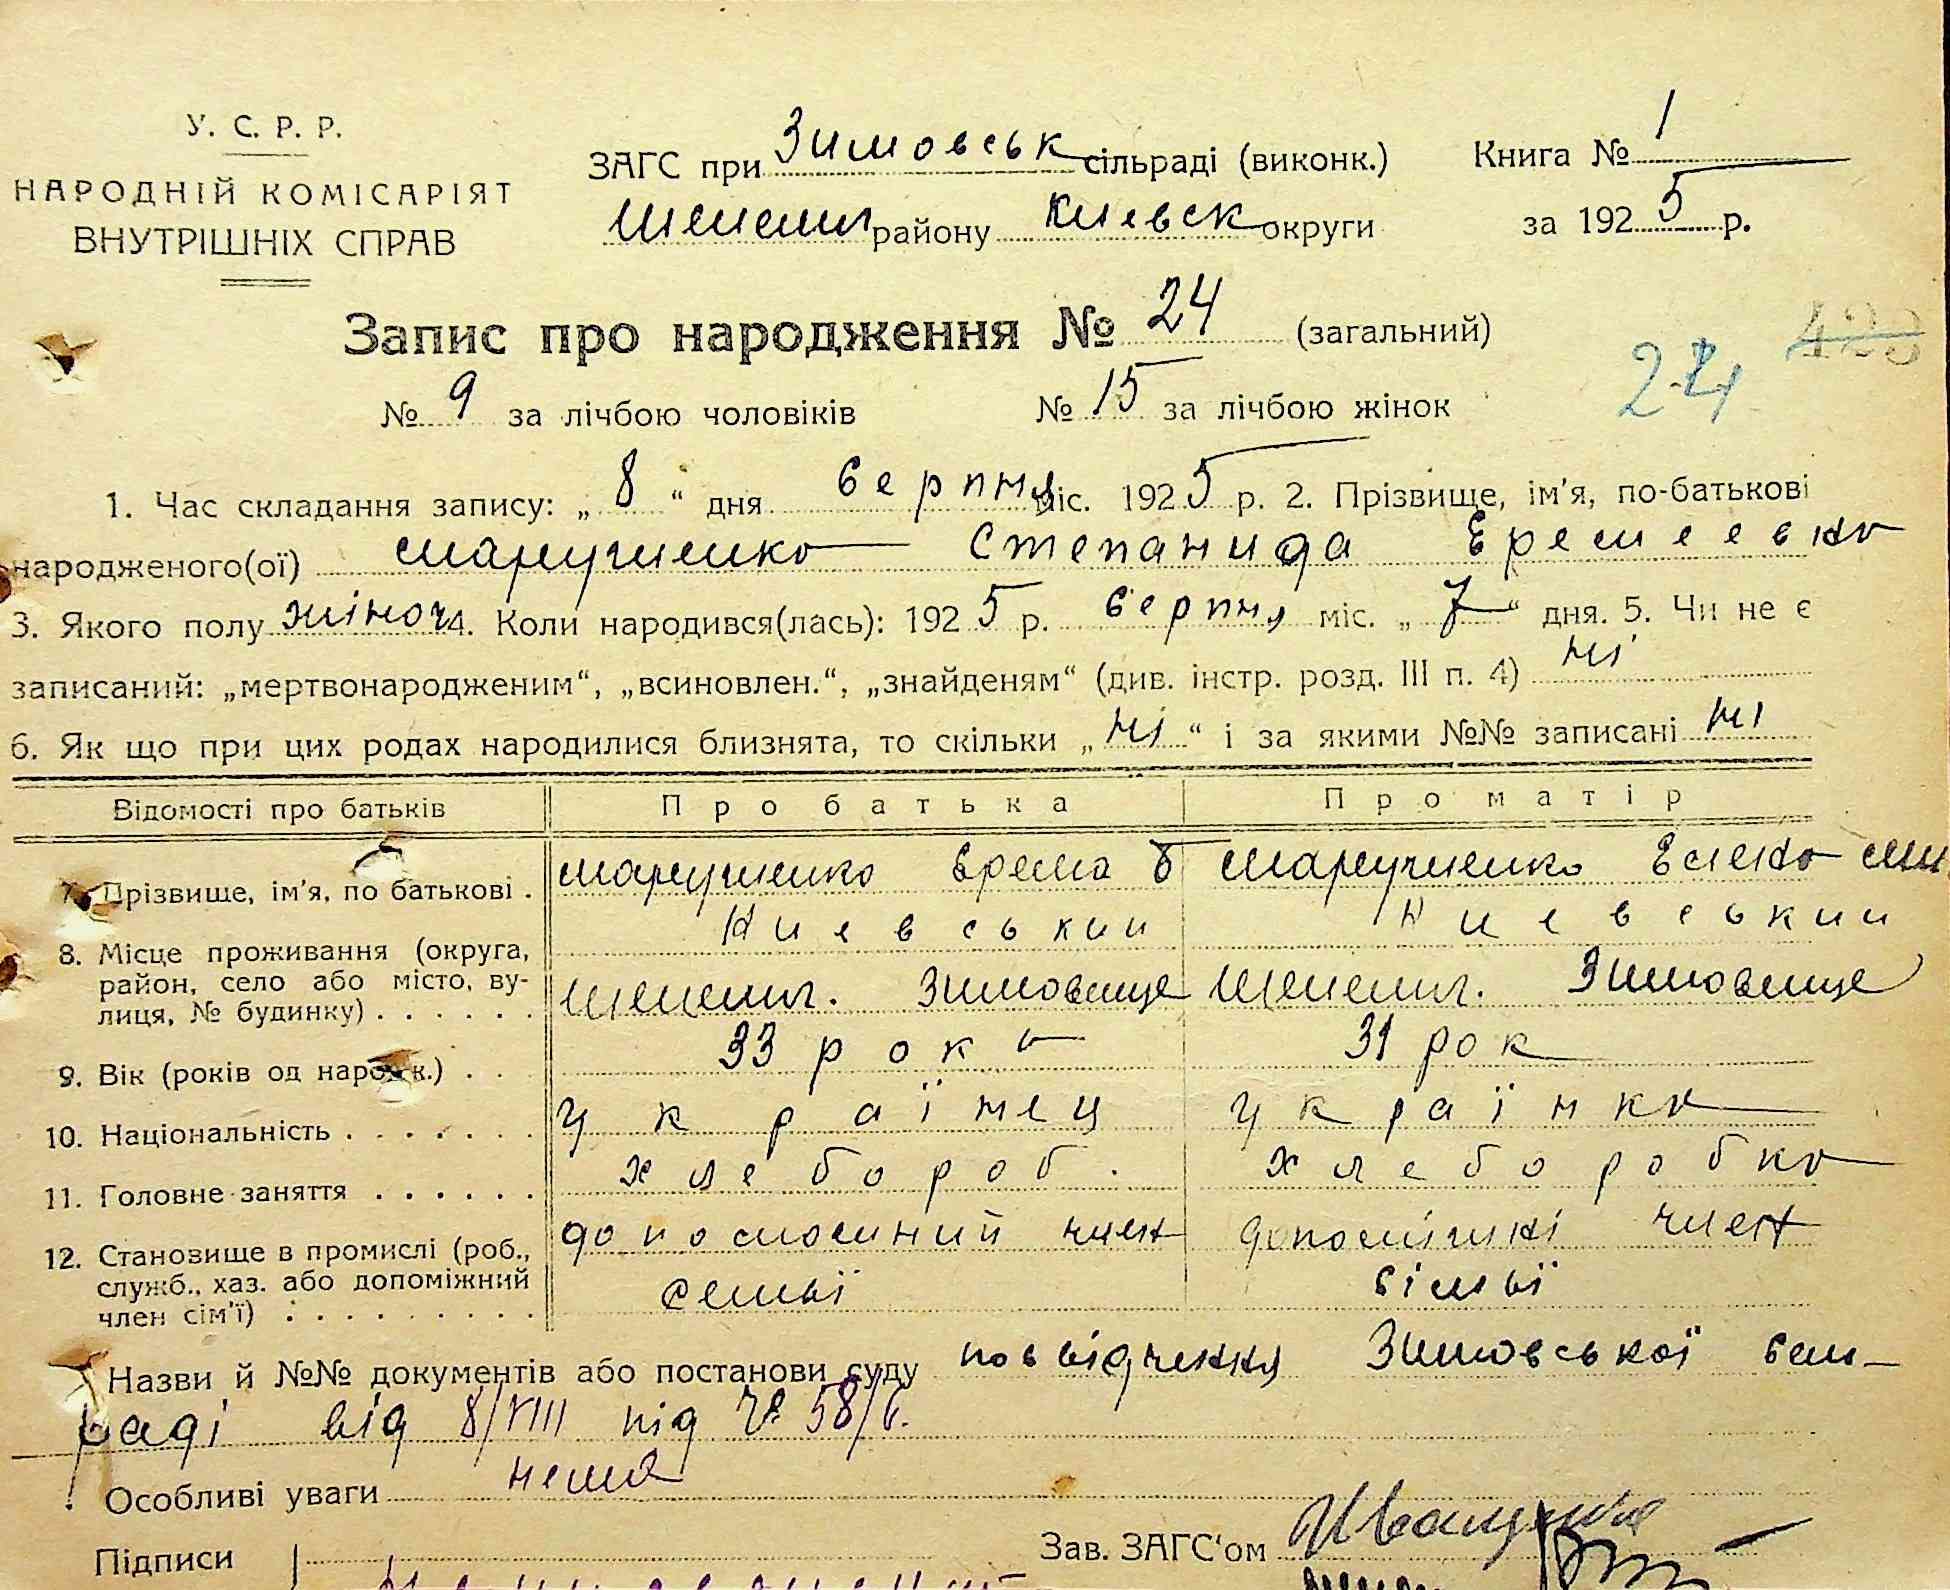 У. С. Р. Р.
НАРОДНІЙ КОМІСАРІЯТ
ВНУТРІШНІХ СПРАВ
ЗАГС при Зимовськ сільраді (виконк.)
Шепелич району Киевск округи
Книга № 1
за 1925 р.
Запис про народження № 24 (загальний)
24
423
№ 9 за лічбою чоловіків № 15 за лічбою жінок
1. Час складання запису: „ 8 “ дня серпня міс. 1925 р. 2. Прізвище, ім'я, по-батькові
народженого(ої) Марученко Степанида Еремеевна
3. Якого полу жіноч 4. Коли народився(лась): 1925 р. серпня міс. „ 7 “ дня. 5. Чи не є
записаний: „мертвонародженим“, „всиновлен.“, „знайденям“ (див. інстр. розд. III п. 4) ні
6. Як що при цих родах народилися близнята, то скільки „ ні “ і за якими №№ записані ні
Відомості про батьків Про батька Про матір
7. Прізвище, ім'я, по батькові . Марученко Ерема Марученко Елена
8. Місце проживання (округа, район, село або місто, вулиця, № будинку) . . . . . .
Киевський Киевський
Шепелич. Зимовище Шепелич. Зимовище
9. Вік (років од народж.) . . 33 рокы 31 рок
10. Національність . . . . . . . українец українка
11. Головне заняття . . . . . . хлебороб. хлеборобка
12. Становище в промислі (роб., служб., хаз. або допоміжний член сім'ї) : . . . . . . . . .
член член
семьї сімьї
Назви й №№ документів або постанови суду посвідчення Зимовської сель-
раді від 8/VIII під № 58/б.
Особливі уваги нема
Зав. ЗАГС'ом
Підписи